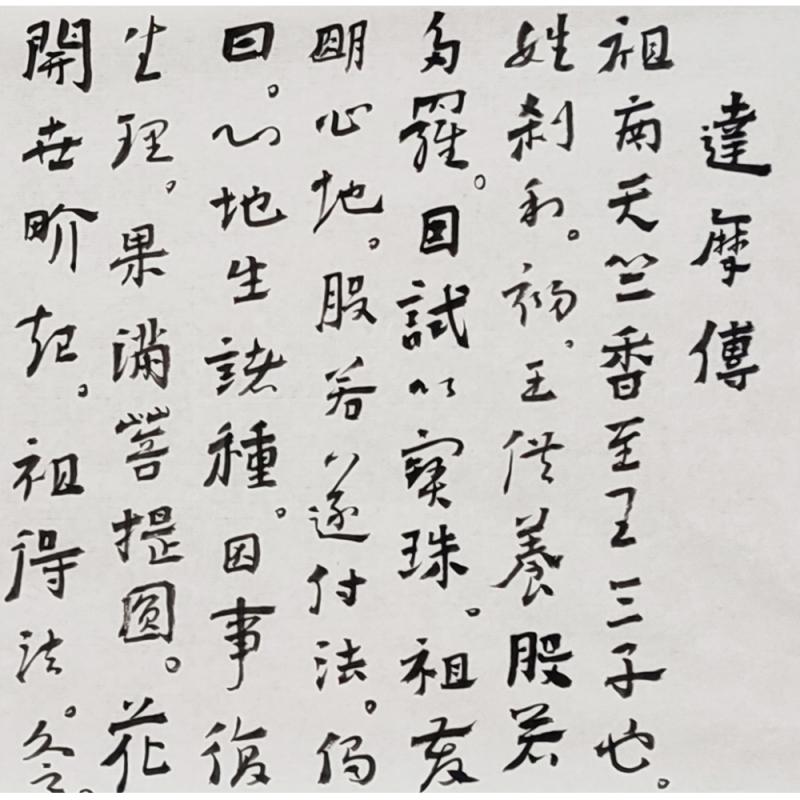 達摩傳
祖南天竺香至王三子也。
姓刹利。初、王供養般若
多羅。因試以寶珠。祖發
明心地。般若遂付法。偈
曰。心地生諸種。因事復
生理。果滿菩提圓。花
開世界起。祖得法。久之。